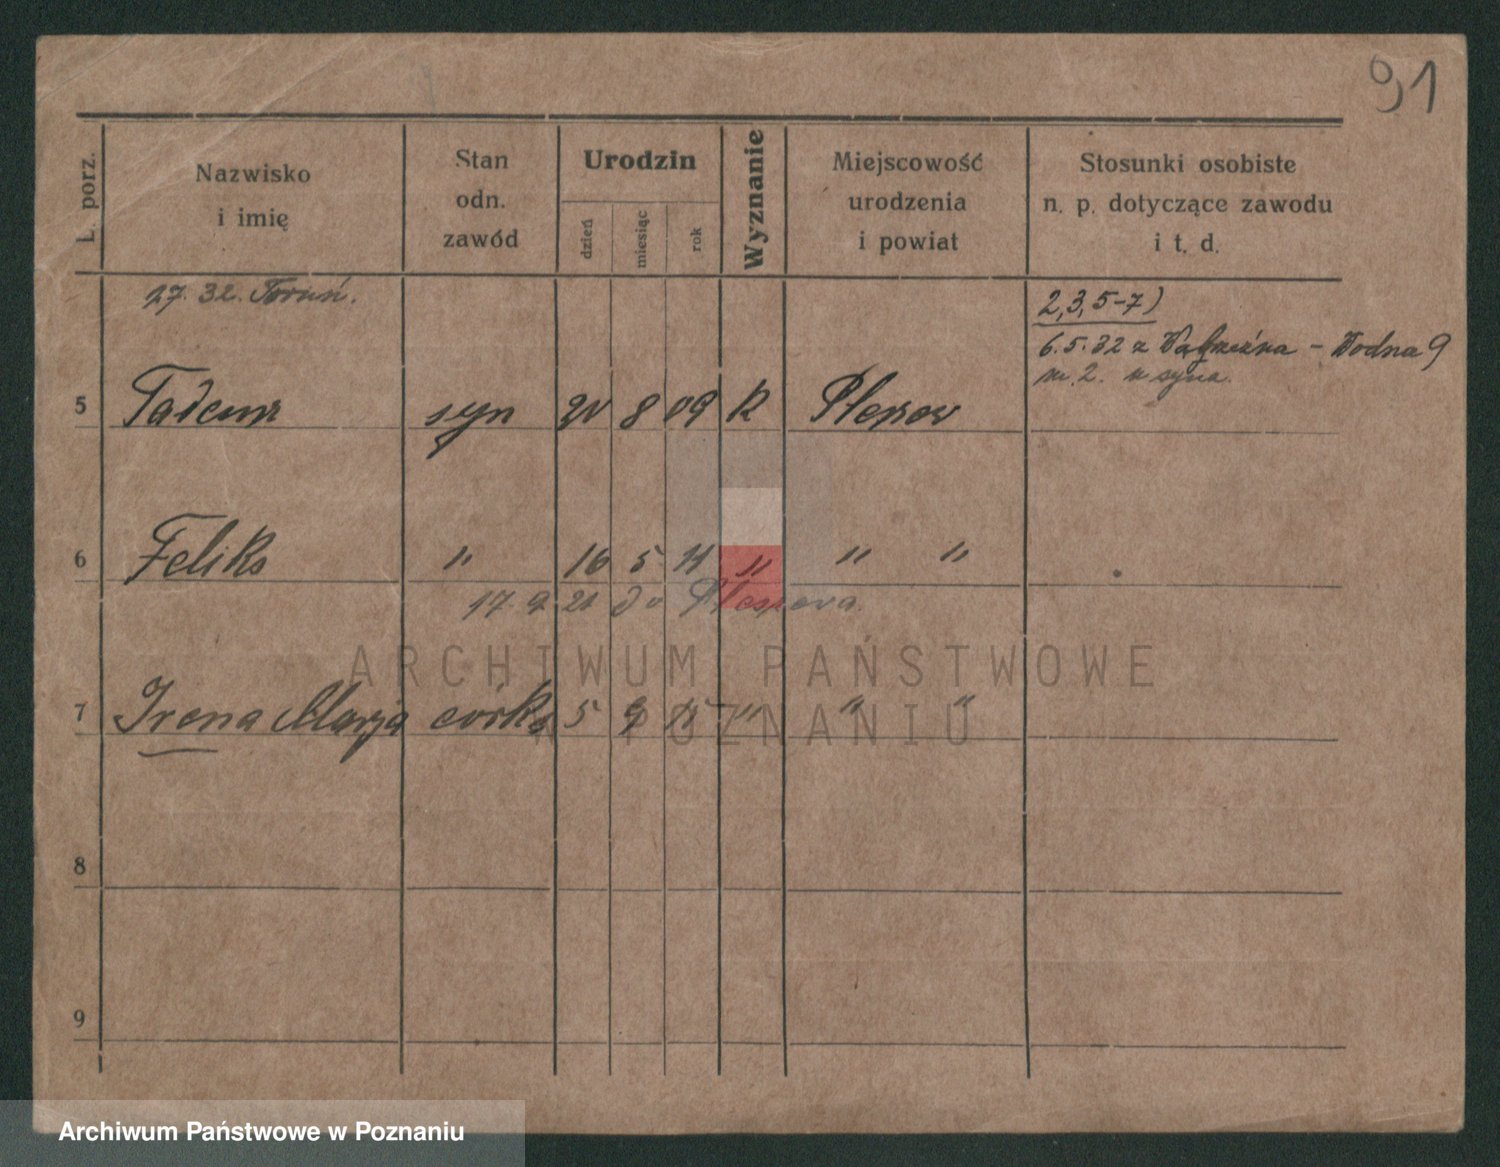 91
L. porz.
Nazwisko
i imię
Stan
odn.
zawód
Urodzin
dzień
miesiąc
rok
Wyznanie
Miejscowość
urodzenia
i powiat
Stosunki osobiste
n. p. dotyczące zawodu
i t. d.
27. 32. Toruń.
2,3,5-7)
6.5.32 z Wąbrzeźna - Wodna 9
m. 2. u syna.
5 Tadeusz syn 20 8 09 R Pleszew
6 Feliks " 16 5 11 " " "
17. 9. 21 do Pleszewa.
7 Irena Marja córka 5 9 15 " " "
8
9
ARCHIWUM PAŃSTWOWE
W POZNANIU
Archiwum Państwowe w Poznaniu